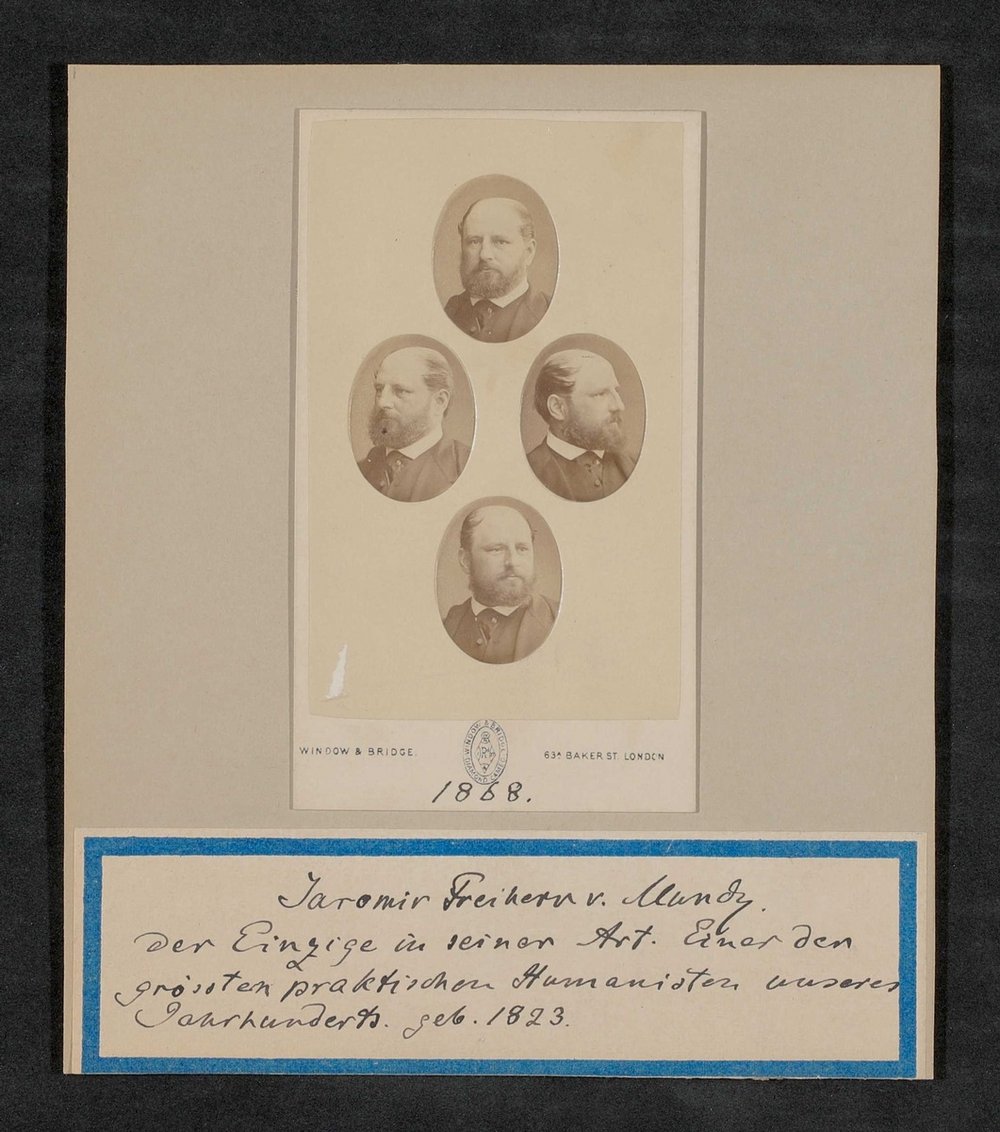 WINDOW & BRIDGE.
WINDOW & BRIDGE
DIAMOND CAMEO
63A BAKER ST. LONDON
1868.
Jaromir Freiherr v. Mundy.
Der Einzige in seiner Art. Einer der
grössten praktischen Humanisten unseres
Jahrhunderts. geb. 1823.